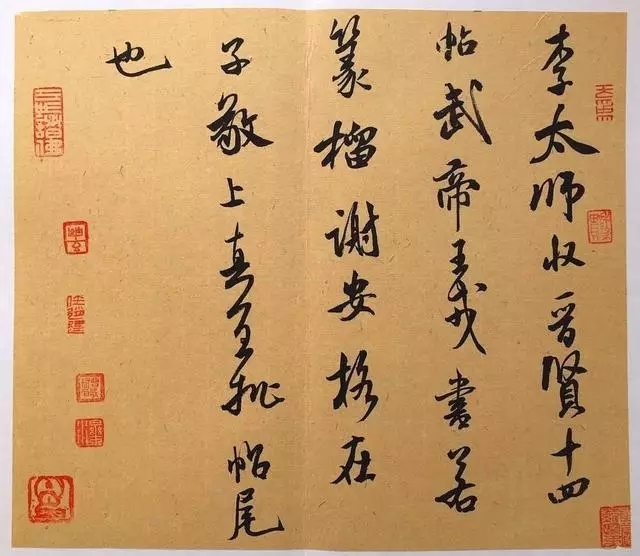 李太師收晋賢十四
帖武帝王戎書若
篆榴謝安格在
子敬上真宜批帖尾
也